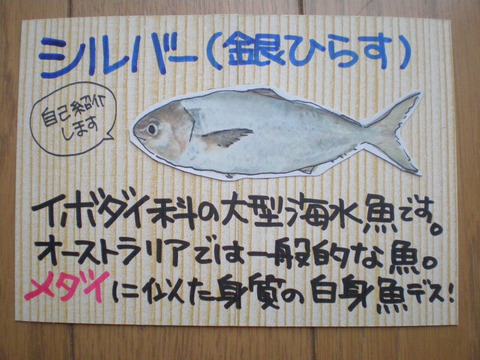 シルバー(銀ひらす)
自己紹介
します
イボダイ科の大型海水魚です。
オーストラリアでは一般的な魚。
メダイに似た身質の白身魚デス!